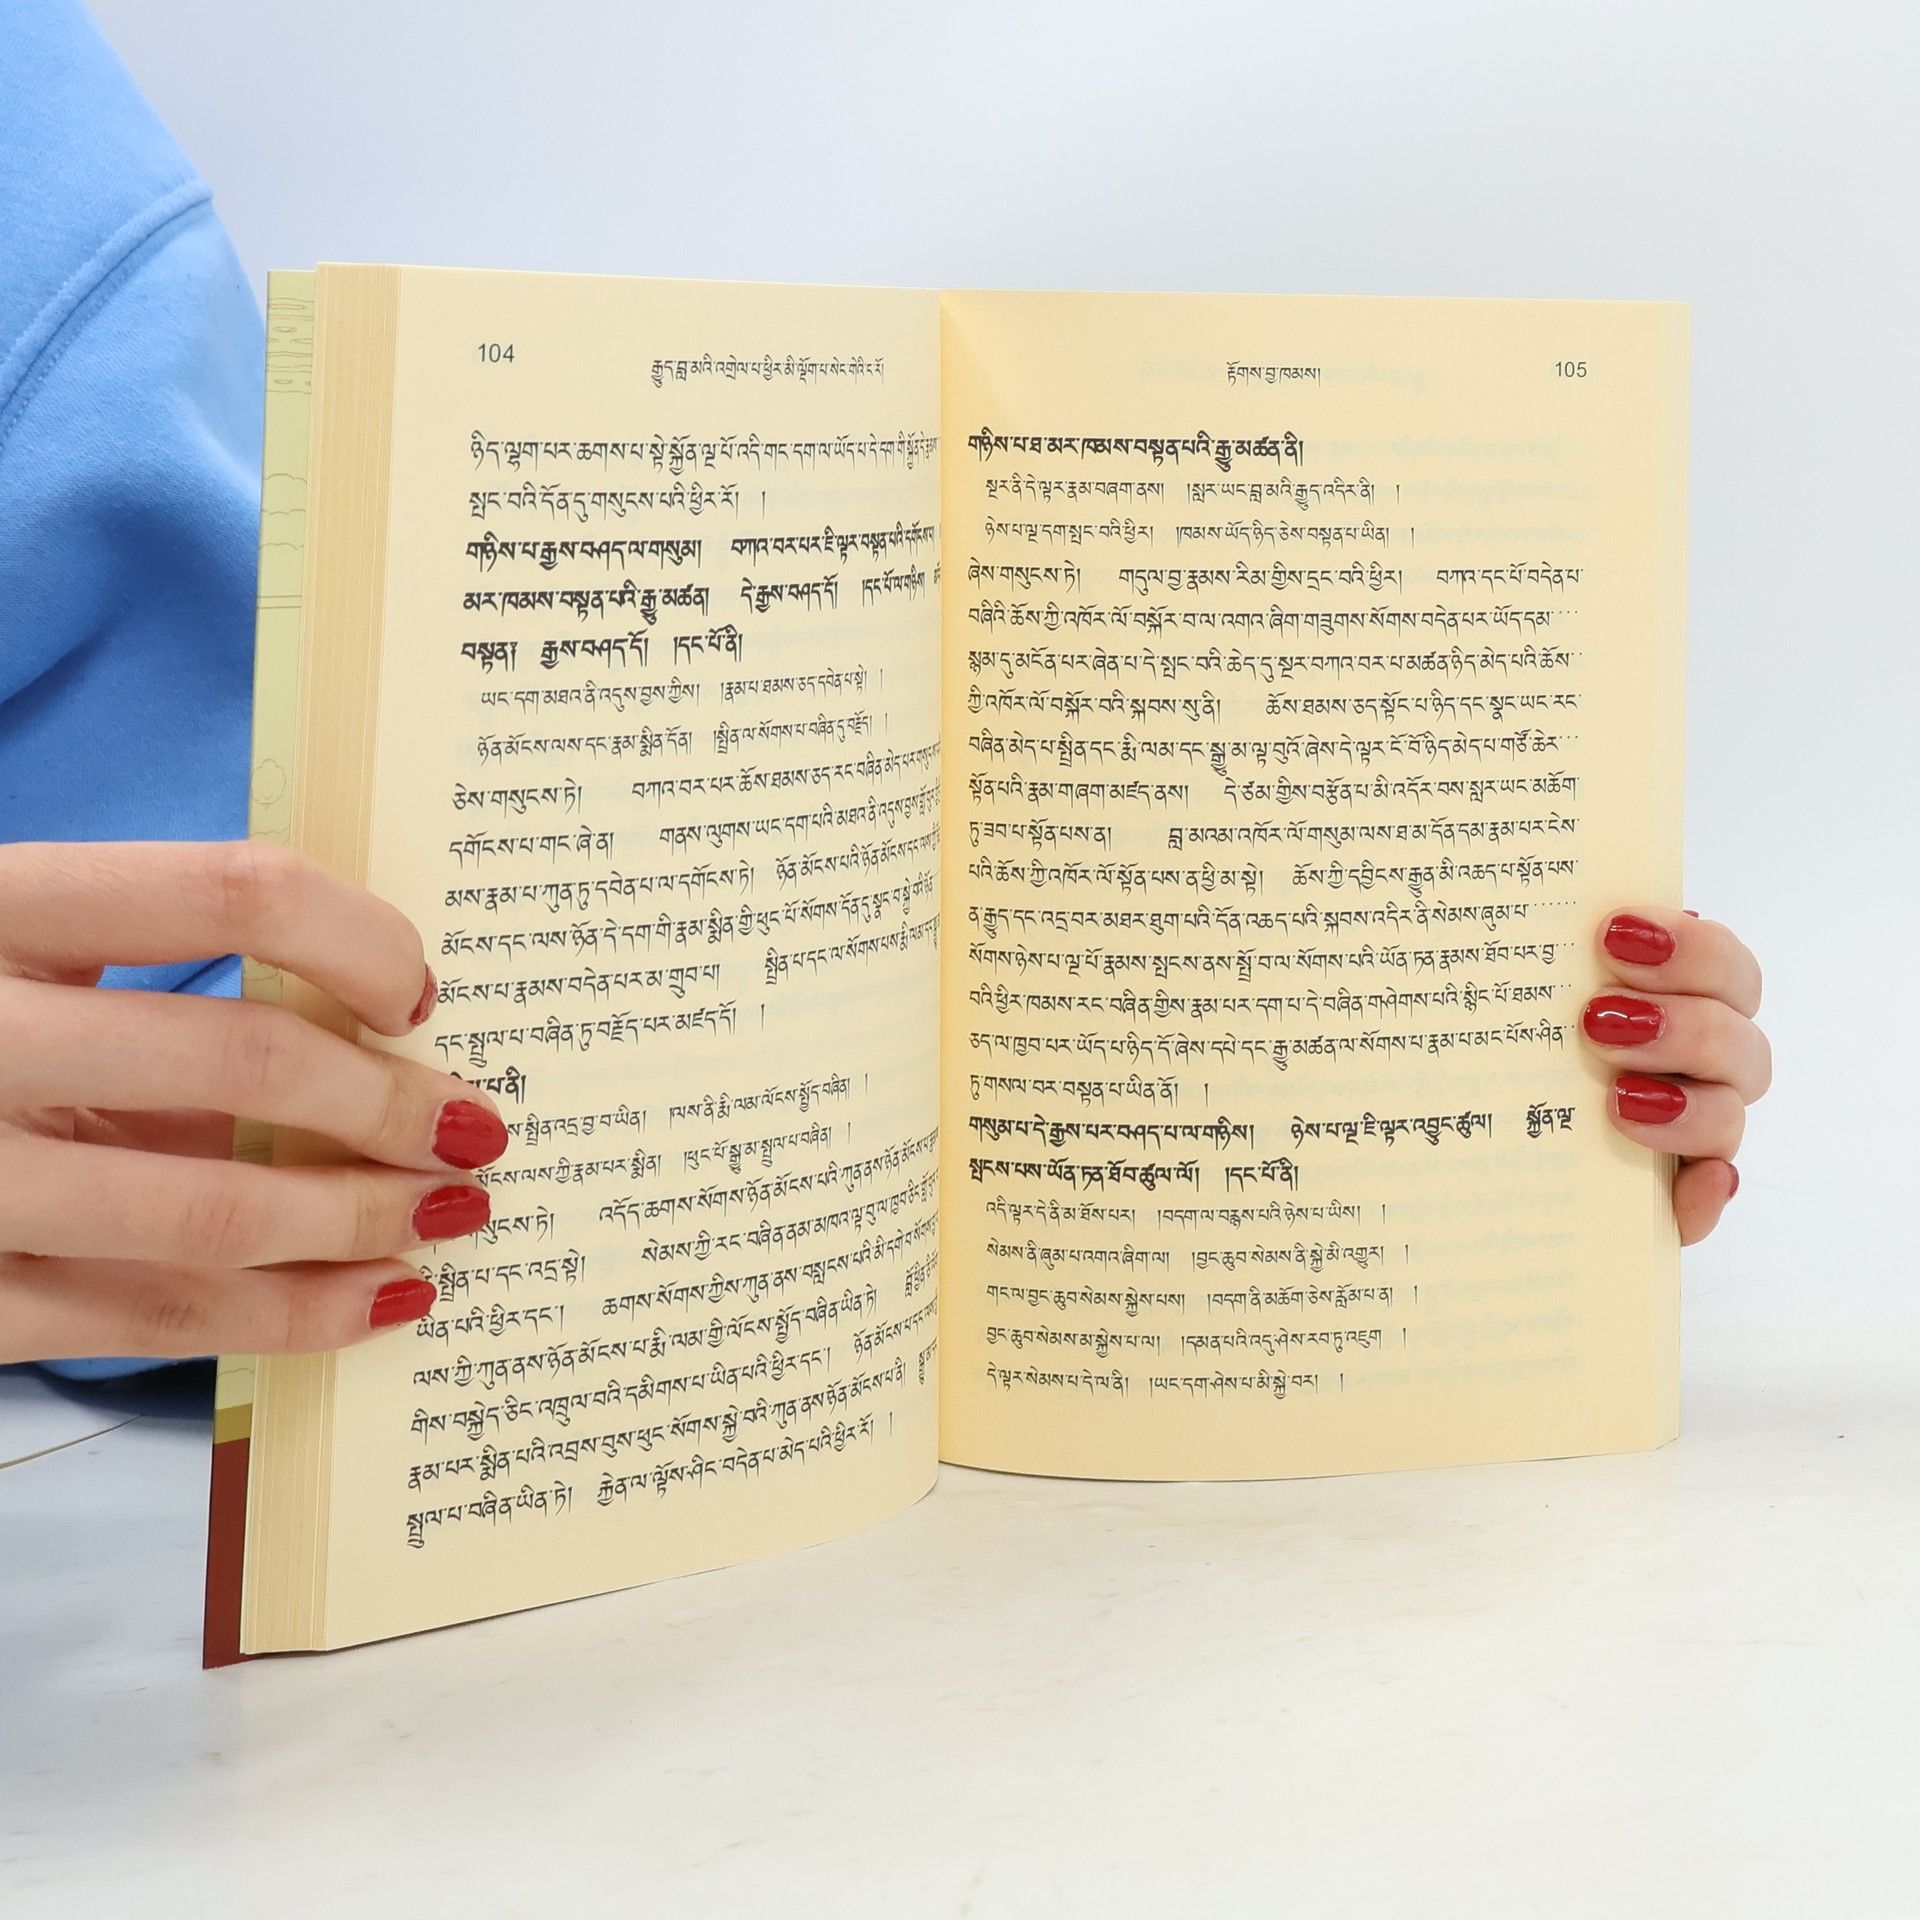 104
རྒྱུད་བླ་མའི་འགྲེལ་པ་ཕྱིར་མི་ལྡོག་པ་སེང་གེའི་ང་རོ།
ཉིད་ལྷག་པར་ཆགས་པ་སྟེ་སྐྱོན་ལྔ་པོ་འདི་གང་དག་ལ་ཡོད་པ་དེ་དག་གི་སྐྱོན་དེ་རྣམས་
སྤང་བའི་དོན་དུ་གསུངས་པའི་ཕྱིར་རོ། །
གཉིས་པ་རྒྱས་བཤད་ལ་གསུམ། བཀའ་བར་པར་ཇི་ལྟར་བསྟན་པའི་དགོངས་པ།
མར་ཁམས་བསྟན་པའི་རྒྱུ་མཚན། དེ་རྒྱས་བཤད་དོ། །དང་པོ་ལ་གཉིས།
བསྟན། རྒྱས་བཤད་དོ། །དང་པོ་ནི།
ཡང་དག་མཐའ་ནི་འདུས་བྱས་ཀྱིས། །རྣམ་པ་ཐམས་ཅད་དབེན་པ་སྟེ། །
ཉོན་མོངས་ལས་དང་རྣམ་སྨིན་དོན། །སྤྲིན་ལ་སོགས་པ་བཞིན་དུ་བརྗོད། །
ཅེས་གསུངས་ཏེ། བཀའ་བར་པར་ཆོས་ཐམས་ཅད་རང་བཞིན་མེད་པར་གསུངས་
དགོངས་པ་གང་ཞེ་ན། གནས་ལུགས་ཡང་དག་པའི་མཐའ་ནི་འདུས་བྱས་
མས་རྣམ་པ་ཀུན་ཏུ་དབེན་པ་ལ་དགོངས་ཏེ། ཉོན་མོངས་པའི་ཉོན་མོངས་དང་ལས་
མོངས་དང་ལས་ཉོན་དེ་དག་གི་རྣམ་སྨིན་གྱི་ཕུང་པོ་སོགས་དོན་དུ་སྣང་བ་སྐྱེ་བའི་ཉོན་
མོངས་པ་རྣམས་བདེན་པར་མ་གྲུབ་པ། སྤྲིན་པ་དང་ལ་སོགས་པས་རྨི་ལམ་དང་
དང་སྤྲུལ་པ་བཞིན་ཏུ་བརྗོད་པར་མཛད་དོ། །
པ་ནི།
སྤྲིན་འདྲ་བྱ་བ་ཡིན། །ལས་ནི་རྨི་ལམ་ལོངས་སྤྱོད་བཞིན། །
མོངས་ལས་ཀྱི་རྣམ་པར་སྨིན། །ཕུང་པོ་སྒྱུ་མ་སྤྲུལ་པ་བཞིན། །
གསུངས་ཏེ། འདོད་ཆགས་སོགས་ཉོན་མོངས་པའི་ཀུན་ནས་ཉོན་མོངས་པ་
སྤྲིན་པ་དང་འདྲ་སྟེ། སེམས་ཀྱི་རང་བཞིན་ནམ་མཁའ་ལྟ་བུ་ལ་
ཡིན་པའི་ཕྱིར་དང་། ཆགས་སོགས་ཀྱིས་ཀུན་ནས་བསླངས་པའི་མི་དགེ་བ་སོགས་
ལས་ཀྱི་ཀུན་ནས་ཉོན་མོངས་པ་རྨི་ལམ་གྱི་ལོངས་སྤྱོད་བཞིན་ཡིན་ཏེ།
གིས་བསྐྱེད་ཅིང་འཁྲུལ་བའི་དམིགས་པ་ཡིན་པའི་ཕྱིར་དང་། ཉོན་མོངས་པ་དང་ལས་
རྣམ་པར་སྨིན་པའི་འབྲས་བུས་ཕུང་སོགས་སྐྱེ་བའི་ཀུན་ནས་ཉོན་མོངས་པ་ནི།
སྤྲུལ་པ་བཞིན་ཡིན་ཏེ། རྐྱེན་ལ་ལྟོས་ཤིང་བདེན་པ་མེད་པའི་ཕྱིར་རོ། །
རྟོགས་བྱ་ཁམས།
105
གཉིས་པ་ཐ་མར་ཁམས་བསྟན་པའི་རྒྱུ་མཚན་ནི།
སྔར་ནི་དེ་ལྟར་རྣམ་བཞག་ནས། །སླར་ཡང་བླ་མའི་རྒྱུད་འདིར་ནི། །
ཉེས་པ་ལྔ་དག་སྤང་བའི་ཕྱིར། །ཁམས་ཡོད་ཉིད་ཅེས་བསྟན་པ་ཡིན། །
ཞེས་གསུངས་ཏེ། གདུལ་བྱ་རྣམས་རིམ་གྱིས་དྲང་བའི་ཕྱིར། བཀའ་དང་པོ་བདེན་པ་
བཞིའི་ཆོས་ཀྱི་འཁོར་ལོ་བསྐོར་བ་ལ་འགའ་ཞིག་གཟུགས་སོགས་བདེན་པར་ཡོད་དམ་
སྙམ་དུ་མངོན་པར་ཞེན་པ་དེ་སྤང་བའི་ཆེད་དུ་སྔར་བཀའ་བར་པ་མཚན་ཉིད་མེད་པའི་ཆོས་
ཀྱི་འཁོར་ལོ་བསྐོར་བའི་སྐབས་སུ་ནི། ཆོས་ཐམས་ཅད་སྟོང་པ་ཉིད་དང་སྣང་ཡང་རང་
བཞིན་མེད་པ་སྤྲིན་དང་རྨི་ལམ་དང་སྒྱུ་མ་ལྟ་བུའོ་ཞེས་དེ་ལྟར་ངོ་བོ་ཉིད་མེད་པ་གཙོ་ཆེར་
སྟོན་པའི་རྣམ་གཞག་མཛད་ནས། དེ་ཙམ་གྱིས་བརྩོན་པ་མི་འདོར་བས་སླར་ཡང་མཆོག་
ཏུ་ཟབ་པ་སྟོན་པས་ན། བླ་མའམ་འཁོར་ལོ་གསུམ་ལས་ཐ་མ་དོན་དམ་རྣམ་པར་ངེས་
པའི་ཆོས་ཀྱི་འཁོར་ལོ་སྟོན་པས་ན་ཕྱི་མ་སྟེ། ཆོས་ཀྱི་དབྱིངས་རྒྱུན་མི་འཆད་པ་སྟོན་པས་
ན་རྒྱུད་དང་འདྲ་བར་མཐར་ཐུག་པའི་དོན་འཆད་པའི་སྐབས་འདིར་ནི་སེམས་ཞུམ་པ་
སོགས་ཉེས་པ་ལྔ་པོ་རྣམས་སྤངས་ནས་སྤྲོ་བ་ལ་སོགས་པའི་ཡོན་ཏན་རྣམས་ཐོབ་པར་བྱ་
བའི་ཕྱིར་ཁམས་རང་བཞིན་གྱིས་རྣམ་པར་དག་པ་དེ་བཞིན་གཤེགས་པའི་སྙིང་པོ་ཐམས་
ཅད་ལ་ཁྱབ་པར་ཡོད་པ་ཉིད་དོ་ཞེས་དཔེ་དང་རྒྱུ་མཚན་ལ་སོགས་པ་རྣམ་པ་མང་པོས་ཤིན་
ཏུ་གསལ་བར་བསྟན་པ་ཡིན་ནོ། །
གསུམ་པ་དེ་རྒྱས་པར་བཤད་པ་ལ་གཉིས། ཉེས་པ་ལྔ་ཇི་ལྟར་འབྱུང་ཚུལ། སྐྱོན་ལྔ་
སྤངས་པས་ཡོན་ཏན་ཐོབ་ཚུལ་ལོ། །དང་པོ་ནི།
འདི་ལྟར་དེ་ནི་མ་ཐོས་པར། །བདག་ལ་བརྙས་པའི་ཉེས་པ་ཡིས། །
སེམས་ནི་ཞུམ་པ་འགའ་ཞིག་ལ། །བྱང་ཆུབ་སེམས་ནི་སྐྱེ་མི་འགྱུར། །
གང་ལ་བྱང་ཆུབ་སེམས་སྐྱེས་པས། །བདག་ནི་མཆོག་ཅེས་རློམ་པ་ན། །
བྱང་ཆུབ་སེམས་མ་སྐྱེས་པ་ལ། །དམན་པའི་འདུ་ཤེས་རབ་ཏུ་འཇུག །
དེ་ལྟར་སེམས་པ་དེ་ལ་ནི། །ཡང་དག་ཤེས་པ་མི་སྐྱེ་བར། །